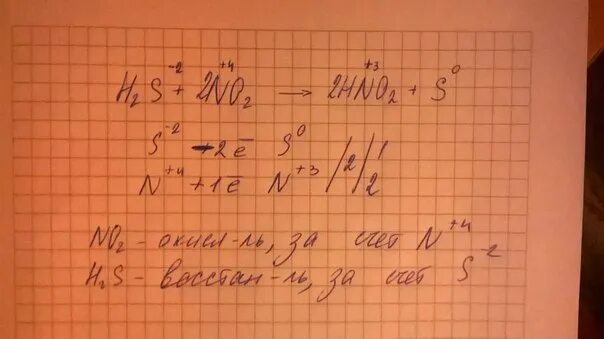 H₂S⁻² + 2N⁺⁴O₂ → 2HN⁺³O₂ + S⁰
S⁻² - 2ē S⁰ /2/ 1
N⁺⁴ + 1ē N⁺³ /2/ 2
NO₂ - окисл-ль, за счет N⁺⁴
H₂S - восстан-ль, за счет S⁻²